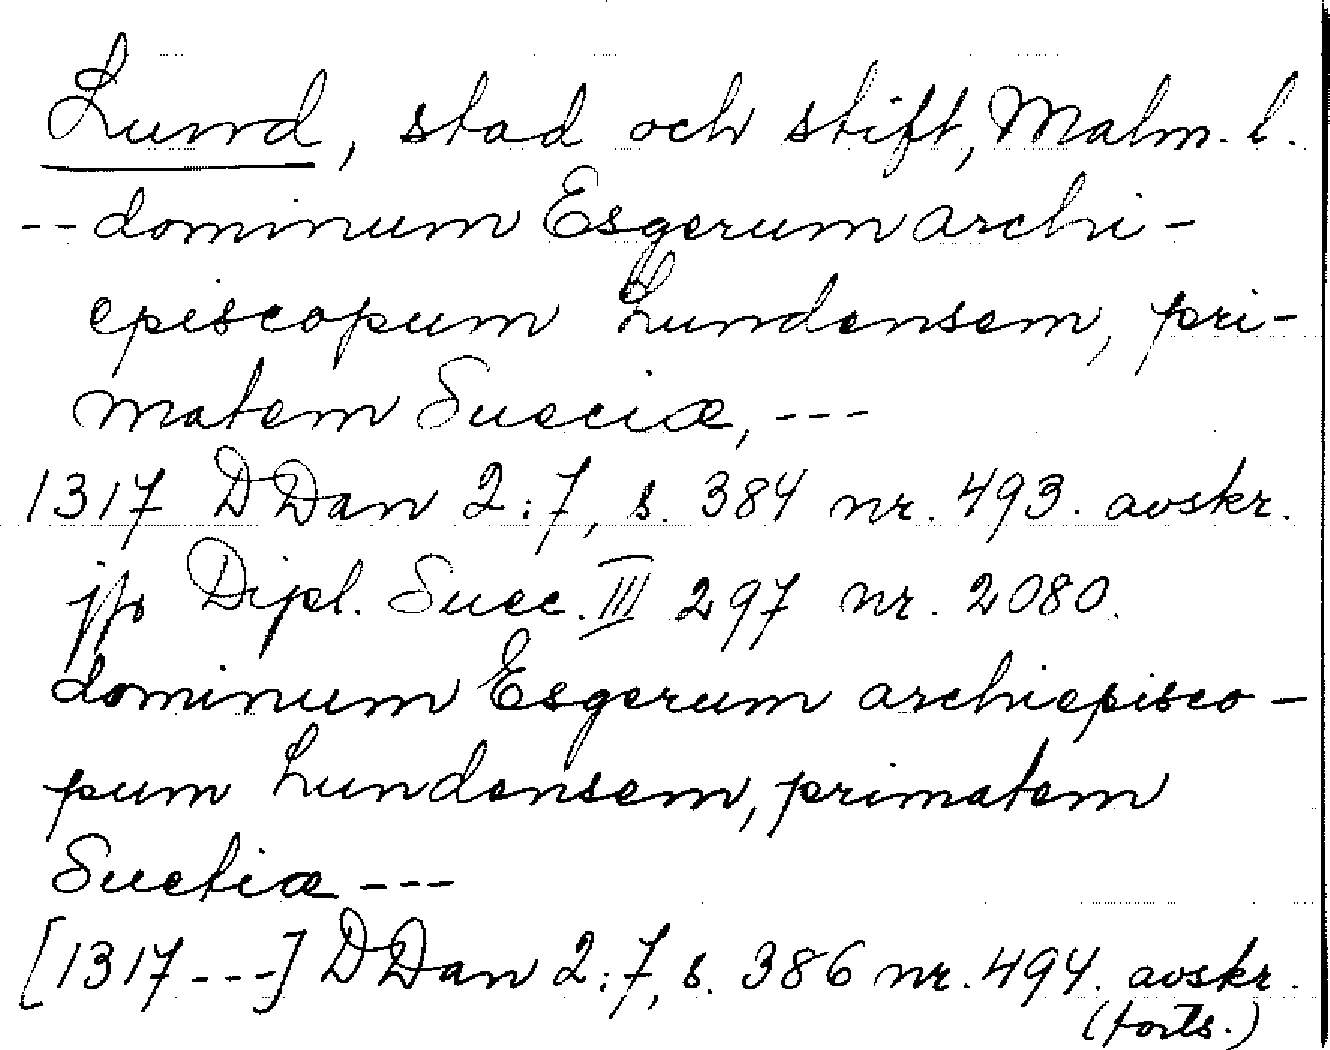 Lund, stad och stift, Malm. l.
-- dominum Esgerum archi-
episcopum Lundensem, pri-
matem Sueciæ, ---
1317 DDan 2:7, s. 384 nr. 493. avskr.
jfr Dipl. Suec. III 297 nr. 2080.
dominum Esgerum archiepisco-
pum Lundensem, primatem
Suetiæ ---
[1317 ---] DDan 2:7, s. 386 nr. 494. avskr.
(forts.)